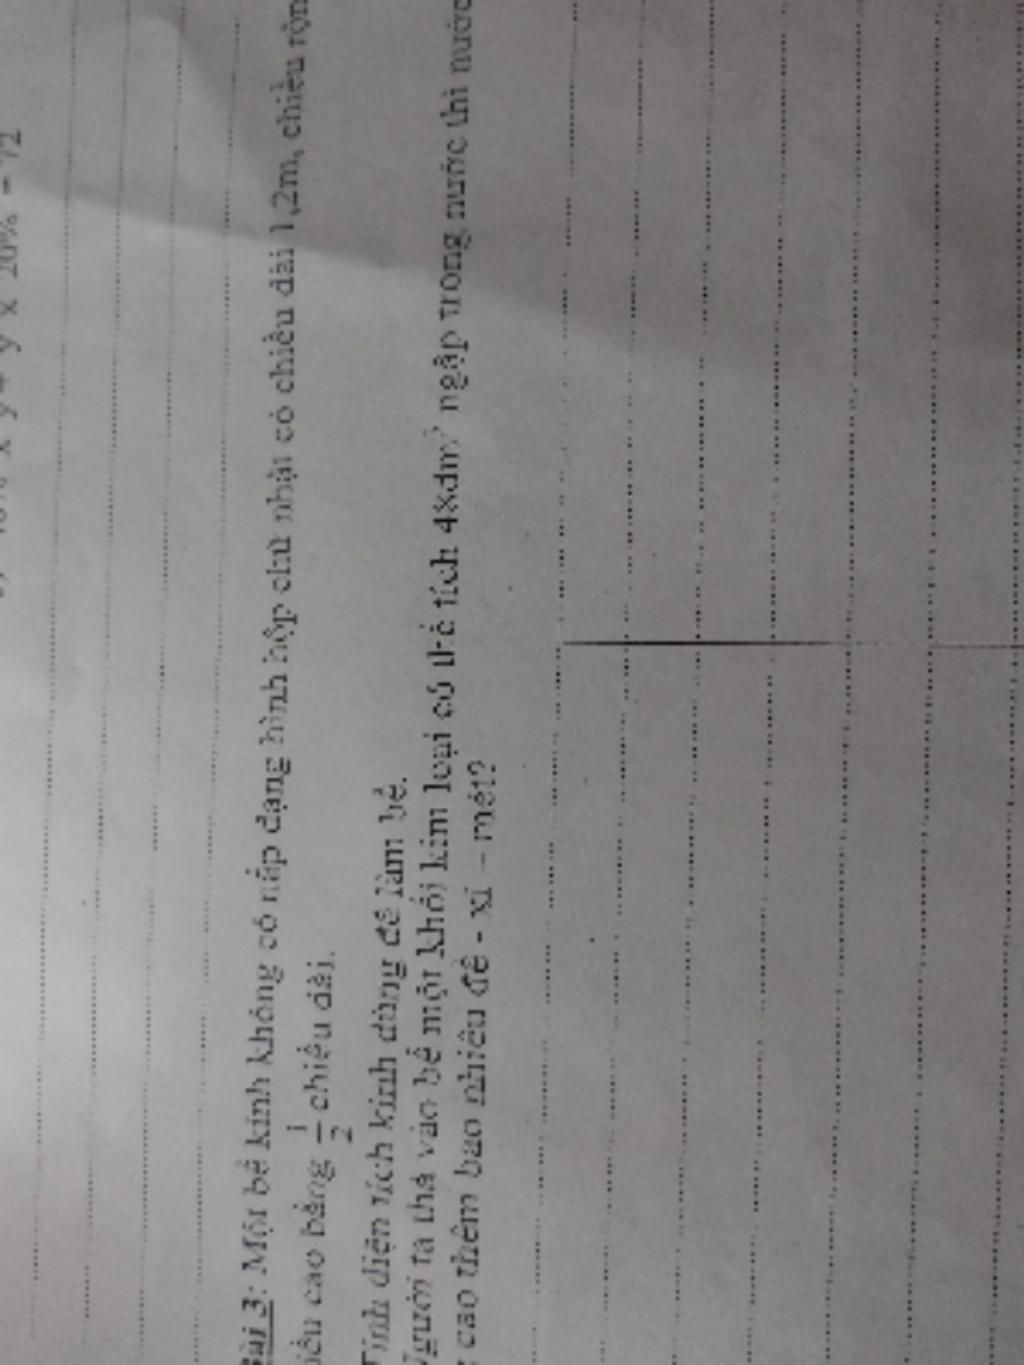 y x 20% = 72
Bài 3: Một bể kính không có nắp dạng hình hộp chữ nhật có chiều dài 1,2m, chiều rộn
iều cao bằng 1/2 chiều dài.
Tính diện tích kính dùng để làm bể.
Người ta thả vào bể một khối kim loại có thể tích 48dm³ ngập trong nước thì nước
g cao thêm bao nhiêu đề - xi – mét?